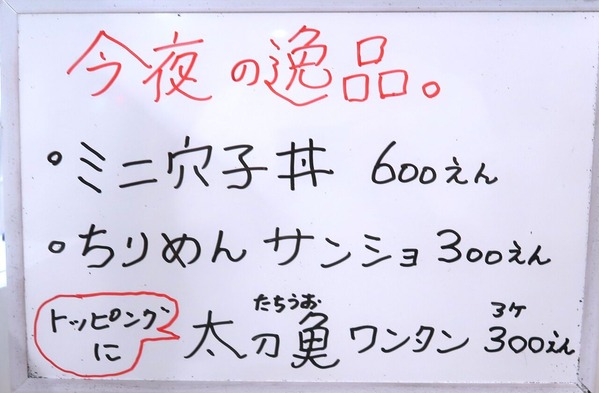 今夜の逸品。
・ミニ穴子丼 600えん
・ちりめんサンショ 300えん
トッピングに
たちうお
太刀魚ワンタン 3ケ 300えん